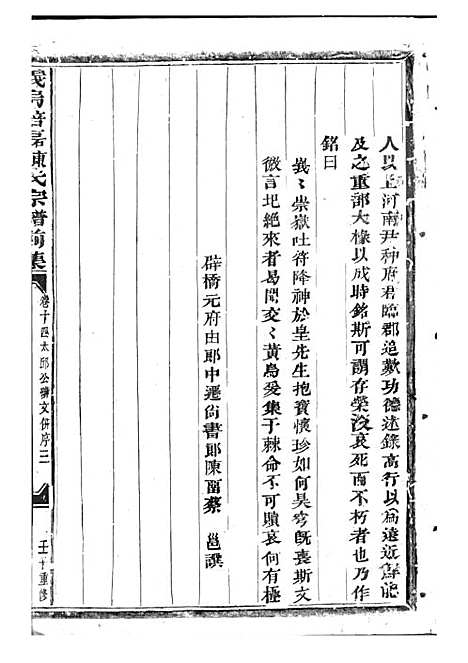 人以上河南尹种府君臨郡追歎功德述錄高行以為遠近鮮能
及之重部大掾以成時銘斯可謂存榮沒哀死而不朽者也乃作
銘曰
峩〻崇嶽吐符降神於皇先生抱寶懷珍如何昊穹旣喪斯文
微言圮絶來者曷聞交〻黃鳥爰集于棘命不可贖哀何有極
辟橋元府由郎中遷尙書郎陳畱蔡 邕譔
義烏 陳氏宗譜前集
卷十四太邱公 文併序三
壬 重修